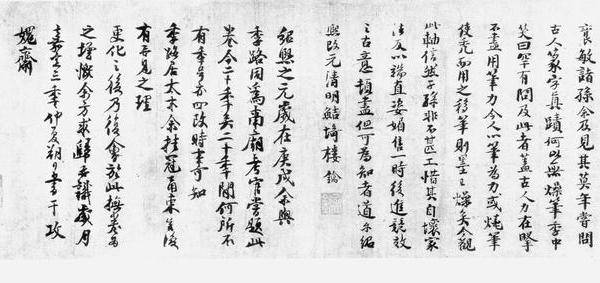 襄敏諸孫余及見其莫年嘗問
古人篆字真蹟何以無燥筆季中
笑曰罕有問及此者蓋古人力在掔
不盡用筆力今人以筆為力或燒筆
使禿而用之移筆則墨已燥矣今觀
此軸信然子孫非不甚工惜其自壞家
法反以端直姿媚售一時後進競效
之古意頓盡但可為知者道尔紹
熙改元清明鮚埼樓鑰
紹熙之元歲在庚戌余與
季路同為南廟考官嘗題此
卷今二十年矣二十年間何所不
有年号亦四改時事可知
季路居太末余挂冠甬東豈復
有再見之理
更化之後乃復會於此撫卷為
之增慨余方求歸識歲月
嘉定三年仲夏朔日書于攻
媿齋